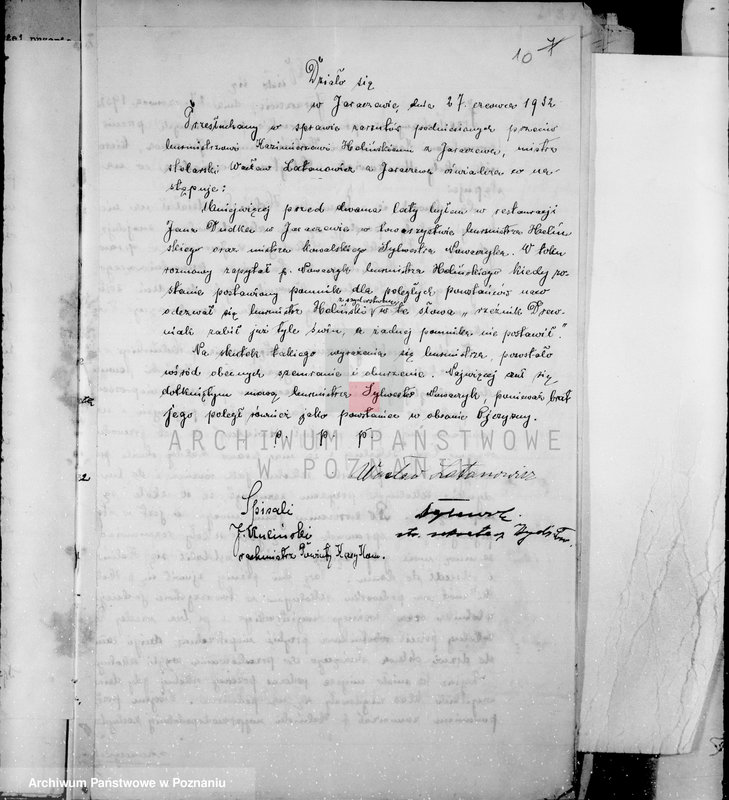 10
Działo się
w Jaraczewie, dnia 27. czerwca 1932
Przesłuchany w sprawie zarzutów podniesionych przeciw
burmistrzowi Kazimierzowi Holińskiemu z Jaraczewa, mistrz
stolarski Wacław Latanowicz z Jaraczewa oświadcza co na-
stępuje:
Mniejwięcej przed dwoma laty byłem w restauracji
Jana Dudka w Jaraczewie w towarzystwie burmistrza Holiń
skiego oraz mistrza kowalskiego Sylwestra Nawaczyka. W toku
rozmowy zapytał p. Nawaczyk burmistrza Holińskiego kiedy zo-
stanie postawiony pomnik dla poległych powstańców na co
odezwał się burmistrz Holiński w te słowa „rzeźnik Drew-
niak zabił już tyle świń, a żadnej pomnika nie postawił."
Na skutek takiego wyrażenia się burmistrza, powstało
wśród obecnych szemranie i oburzenie. Najwięcej czuł się
dotkniętym mową burmistrza Sylwester Nawaczyk, ponieważ brat
jego, poległ również jako powstaniec w obronie Ojczyzny.
p. p. p.
Wacław Latanowicz
Spisali
J. Kuciński
rachmistrz Powiat. Kasy Kom.
ARCHIWUM PAŃSTWOWE
W POZNANIU
Archiwum Państwowe w Poznaniu